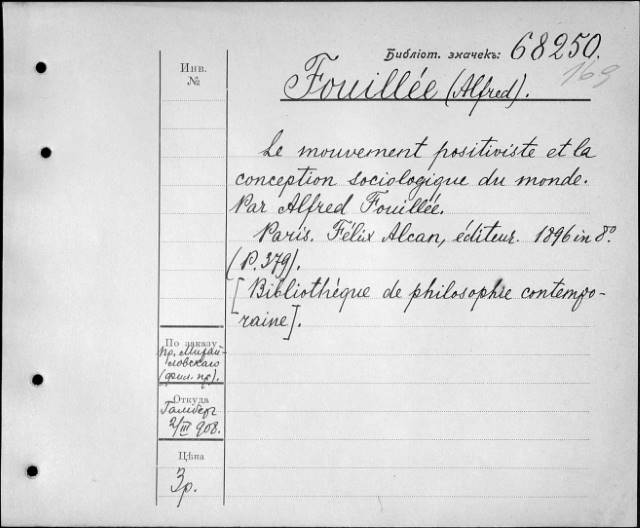 Библіот. значекъ: 68250.
169
Инв.
№
Fouillée (Alfred).
Le mouvement positiviste et la
conception sociologique du monde.
Par Alfred Fouillée.
Paris. Félix Alcan, éditeur. 1896 in 8º.
(P. 379).
[Bibliothèque de philosophie contempo-
raine].
По заказу
пр. Михай-
ловскаго
(фил. пр.)
Откуда
Гамберг
2/III 908.
Цѣна
3р.